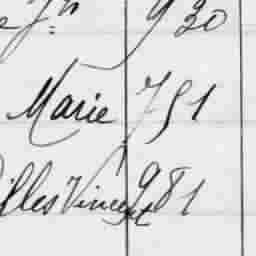 e Jn 930
Marie 751
illes Vincent 981